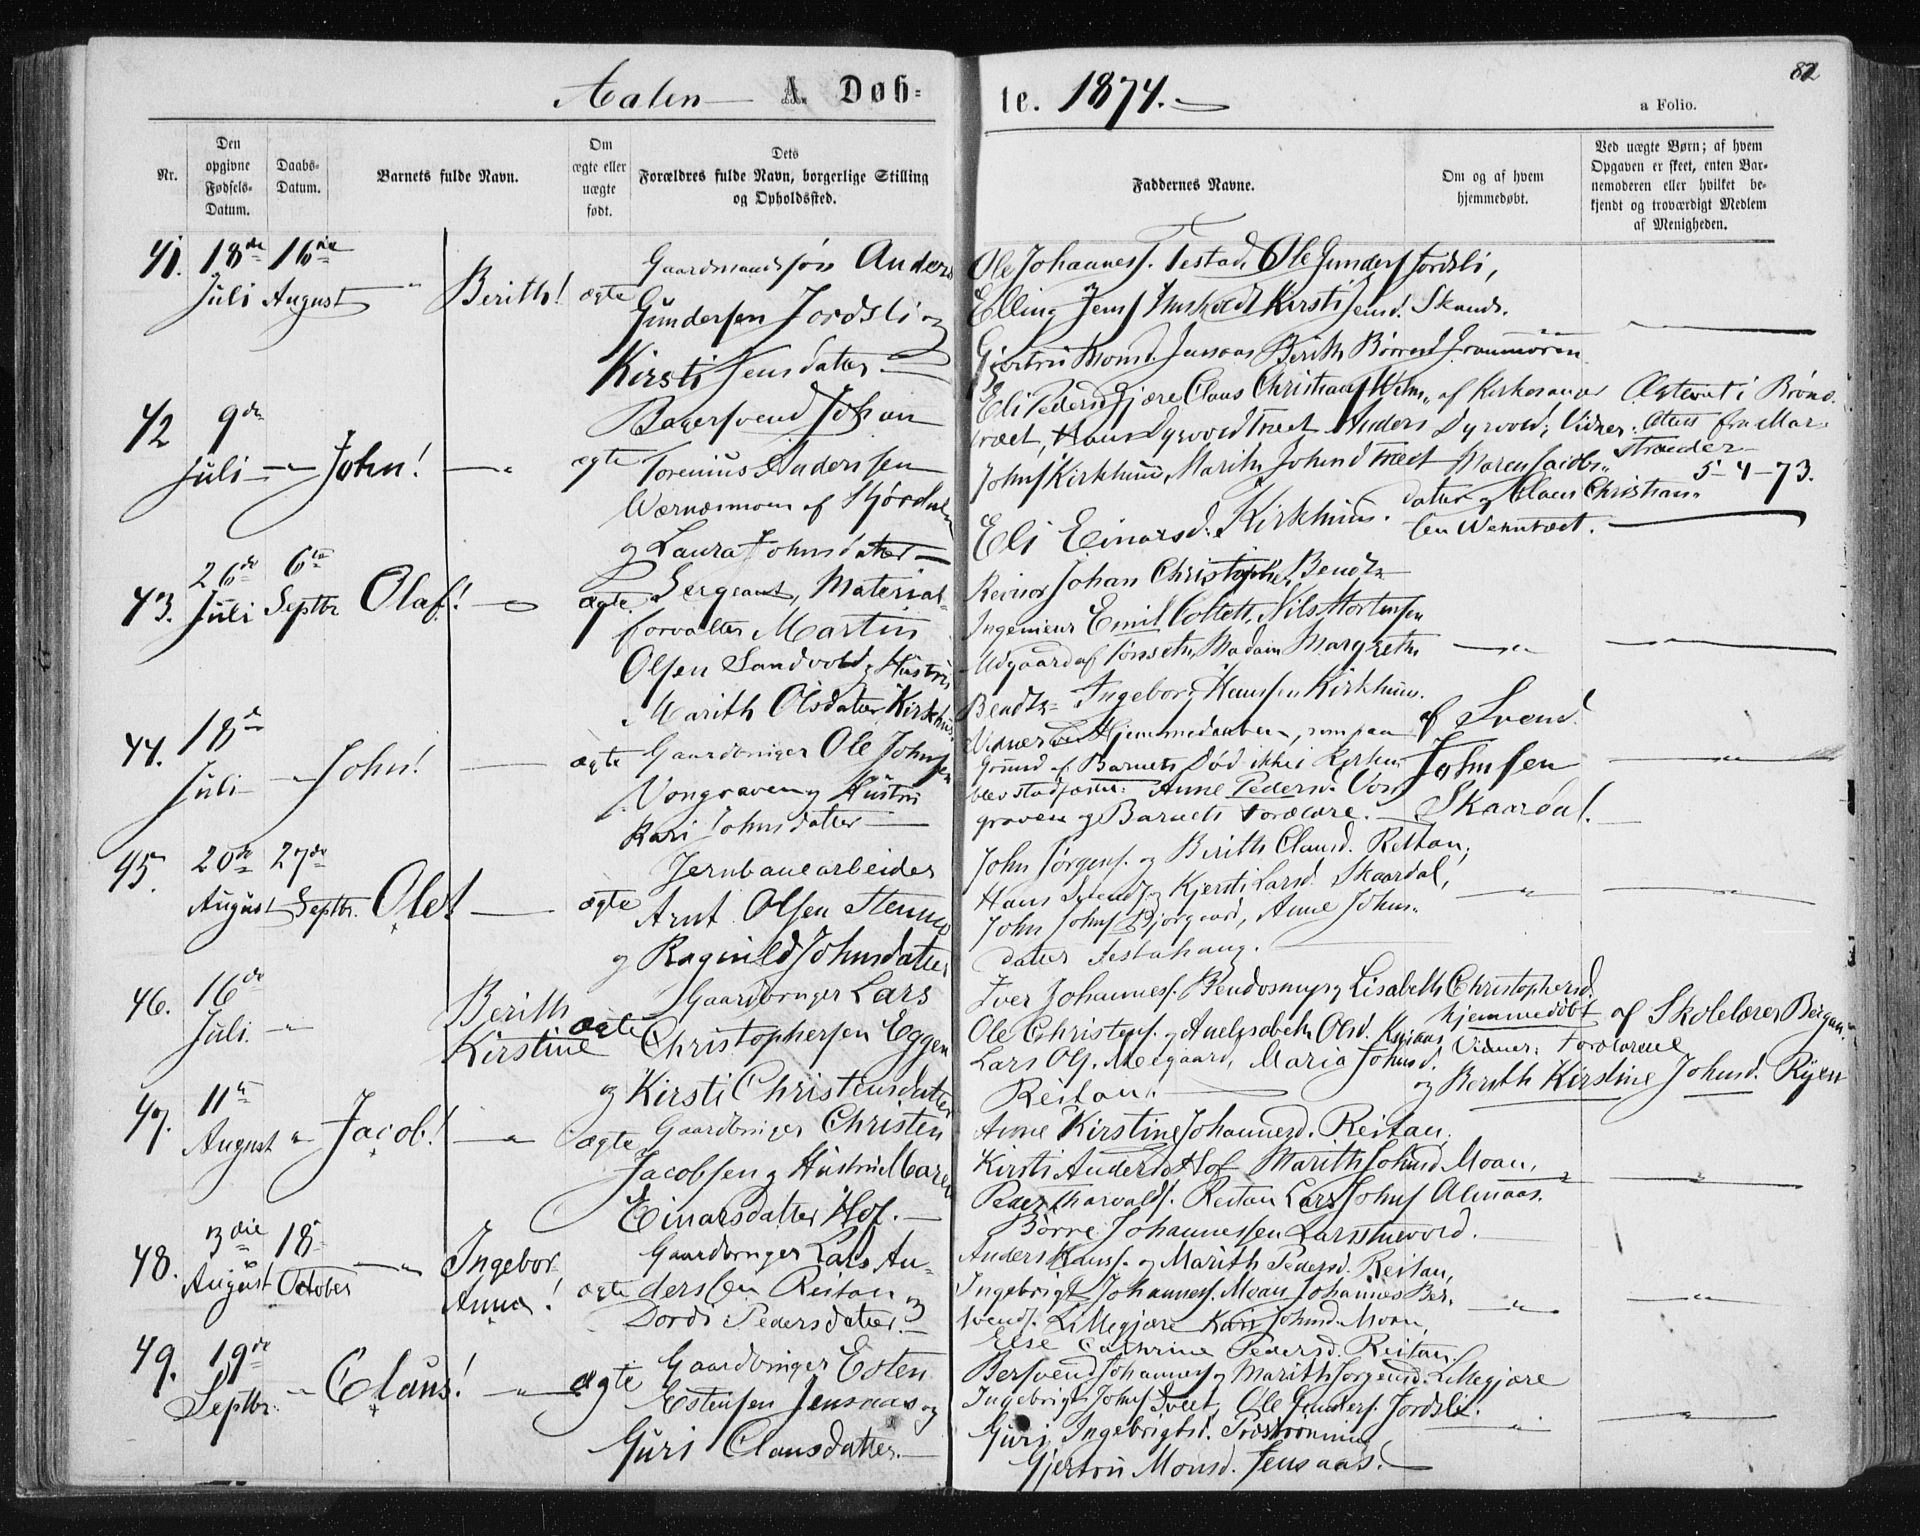 Aalen A Døb=
te. 1874.
82
a Folio.
Nr.
Den
opgivne
Fødsels-
Datum.
Daabs-
Datum.
Barnets fulde Navn.
Om
ægte eller
uægte
født.
Dets
Forældres fulde Navn, borgerlige Stilling
og Opholdssted.
Faddernes Navne.
Om og af hvem
hjemmedøbt.
Ved uægte Børn; af hvem
Opgaven er skeet, enten Bar-
nemoderen eller hvilket be-
kjendt og troværdigt Medlem
af Menigheden.
41. 18de 16de
Juli August " Berith! ægte
Gaardmandssøn Anders
Gundersen Jordsli og
Kirsti Jensdatter
Ole Johannesf. Testad, Ole Gundersf Jordsli,
Elling Jensf Kirsti Jensd. Skands.
Gjertrü Monsd. Jensaas Berith Børresd
42 9de
Juli " John! " ægte
Bagersvend Johan
Torenius Andersen
Wærnesmoen af Stjørdalen
og Laura Johnsdatter
Eli Pedersd Gjære Claus Christians af Kirkesanger
træet, Hans Dyrvold Træet Anders Dyrvold; Vidner.
Johnsf Kirkhus, Marith Johnsd Træet Maren Jacobs-
datter og Claus Christian-
sen
Eli Einarsd. Kirkhus.
Attest fra Mar-
5-4-73.
43. 26de 6te
Juli Septbr Olaf! ægte
Sergeant, Material-
forvalter Martin
Olsen Sandvold og Hustru
Marith Olsdatter Kirkhus.
Johan Christopher Bendtz
Ingenieur Emil Collett, Nils Mortensen
Udgaard af Tønseth, Madam Margreth
Bendtz Ingeborg Hansen Kirkhus.
44. 18de
Juli " John! ægte
Gaardbruger Ole Johnsen
Vongraven og Hustru
Kari Johnsdatter
Vidner ved Hjemmedaaben, som paa
Grund af Barnets Død ikke i Kirken
blev stadfæstet: Anne Pedersd. Von-
graven og Barnets Forældre.
af Svend
Johnsen
Skaardal.
45. 20de 27de
August Septbr. Ole! ægte
Jernbanearbeider
Arnt Olsen Stenmo
og Ragnild Johnsdatter
John Jørgensf. og Berith Clausd. Reitan,
Hans Svendsf. og Kjersti Larsd. Skaardal,
John Johnsf Bjørgaard, Anne Johns-
datter Testahaug.
46. 16de
Juli. " Berith
Kirstine ægte
Gaardbruger Lars
Christophersen Eggen
og Kirsti Christensdatter
Iver Johannesf. og Lisabeth Christophersd.
Ole Christensf. og Anelisabeth Olsd.
Lars Olsf. Moegaard, Maria Johnsd.
Reitan.
hjemmedøbt af Skolelærer
Vidner: Forældrene
og Berith Kirstine Johnsd. Ryen
47. 11te
August " Jacob! " ægte
Gaardbruger Christen
Jacobsen og Hustru Maren
Einarsdatter Hof.
Anne Kirstine Johannesd. Reitan,
Kirsti Andersd Hof Marith Johnsd Moan,
Peder Tharaldsf. Reitan Lars Johnsf Almaas.
Børre Johannessen Larsstuevold.
48. 13de 18
August October " Ingebor
Anna! ægte
Gaardbruger Lars An-
dersen Reitan og
Dordi Pedersdatter.
Anders Hansf. og Marith Pedersd. Reitan,
Ingebrigt Johannesf. Moan Johannes Ber-
svendsf. Lillegjære Kari Johnsd. Moan,
Else Cathrine Pedersd. Reitan.
49. 19de
Septbr. " Claus! " ægte
Gaardbruger Esten
Estensen Jensaas og
Guri Clausdatter.
Bersvend Johannesf og Marith Jørgensd. Lillegjære
Ingebrigt Johnsf Tveet, Ole Gundersf. Jordsli.
Guri Ingebrigtsd.
Gjertru Monsd. Jensaas.